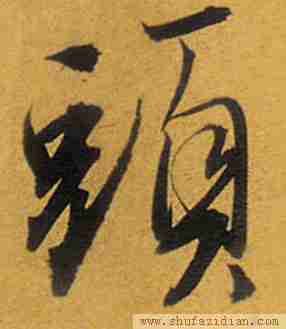 頭
www.shufazidian.com